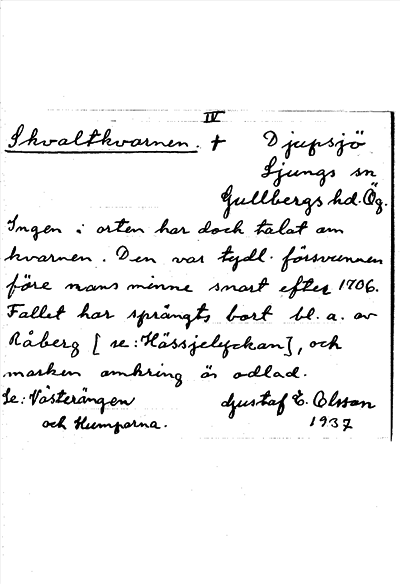 IV
Skvaltkvarnen. † Djupsjö
Ljungs sn
Gullbergs hd. Ög.
Ingen i orten har dock talat om
kvarnen. Den var tydl. försvunnen
före mans minne snart efter 1706.
Fallet har sprängts bort bl. a. av
Råberg [se: Hässjelyckan], och
marken omkring är odlad.
Se: Västerängen Gustaf E. Olsson
och Humparna. 1937